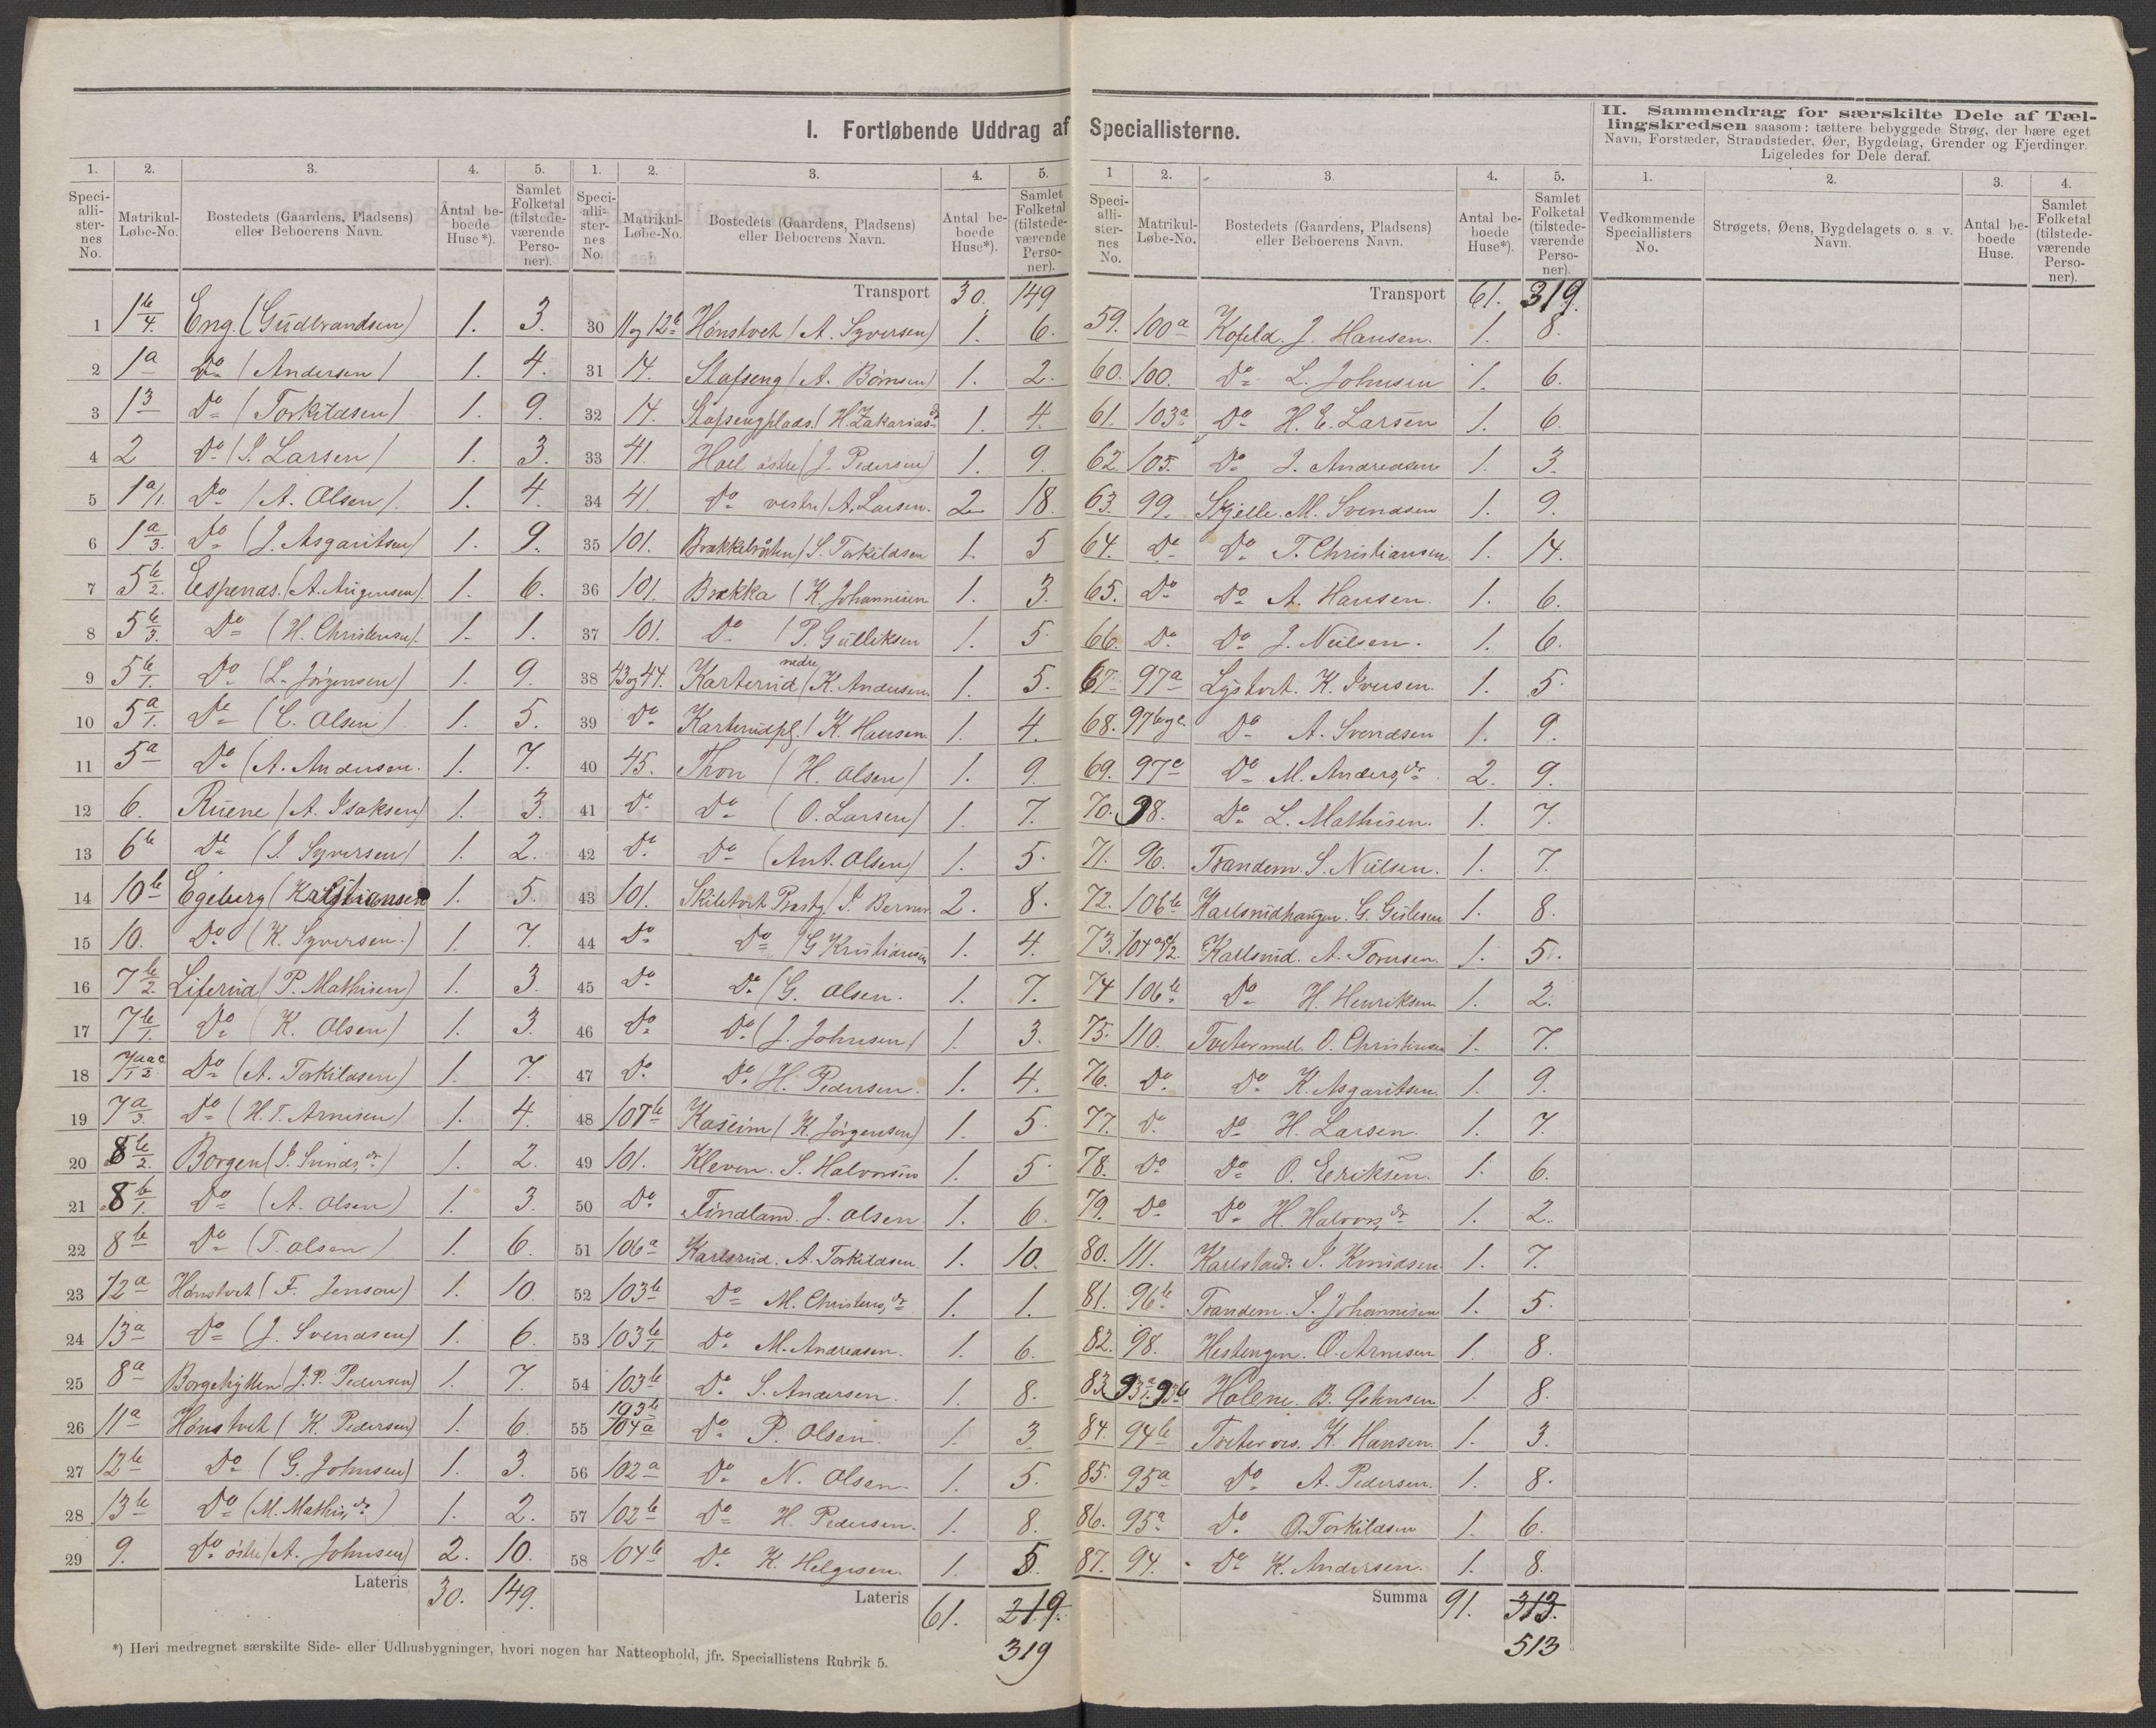 I. Fortløbende Uddrag af Speciallisterne.
II. Sammendrag for særskilte Dele af Tæl-
lingskredsen saasom: tættere bebyggede Strøg, der bære eget
Navn, Forstæder, Strandsteder, Øer, Bygdelag, Grender og Fjerdinger.
Ligeledes for Dele deraf.
1. 2. 3. 4. 5.
Speci-alli-ster-nes No. Matrikul-Løbe-No. Bostedets (Gaardens, Pladsens) eller Beboerens Navn. Antal be-boede Huse*). Samlet Folketal (tilstede-værende Perso-ner).
1 1b/4. Eng. (Gudbrandsen) 1. 3.
2 1a Do (Andersen) 1. 4.
3 13 Do (Torkildsen) 1. 9.
4 2 Do (S. Larsen) 1. 3.
5 1a/1. Do (A. Olsen). 1. 4.
6 1a/3. Do (J. Asgaritsen) 1. 9.
7 5b/2. Espenæs. (A. Augensen). 1. 6.
8 5b/3. Do (H. Christensen). 1. 1.
9 5b/1. Do (L. Jörgensen) 1. 9.
10 5a/1. Do (C. Olsen) 1. 5.
11 5a Do (A. Andersen. 1. 7.
12 6. Ruene (A. Isaksen) 1. 3.
13 6b Do (J. Syversen) 1. 2.
14 10b Egeberg (Kristiansen 1. 5.
15 10. Do (K. Syversen.) 1. 7.
16 7b/2. Liferud (P. Mathisen) 1. 3.
17 7b/1. Do (K. Olsen) 1. 3.
18 Do (A. Torkildsen) 1. 7.
19 7a/3. Do (H. T. Arnesen) 1. 4.
20 8b/2. Borgen (J. Svends. dr) 1. 2.
21 8b/1. Do (A. Olsen) 1. 3.
22 8b Do (T. Olsen) 1. 6.
23 12a Hönstvet (F. Jenson) 1. 10.
24 13a Do (J. Svendsen) 1. 6.
25 8a Borgehytten (J. P. Pedersen) 1. 7.
26 11a Hönstvet (K. Pedersen) 1. 6.
27 12b Do (G. Johnsen) 1. 3.
28 13b Do (M. Mathis. dr) 1. 2.
29 9. Do östre (A. Johnsen) 2. 10.
Lateris 30. 149.
*) Heri medregnet særskilte Side- eller Udhusbygninger, hvori nogen har Natteophold, jfr. Speciallistens Rubrik 5.
1. 2. 3. 4. 5.
Speci-alli-ster-nes No. Matrikul-Løbe-No. Bostedets (Gaardens, Pladsens) eller Beboerens Navn. Antal be-boede Huse*). Samlet Folketal (tilstede-værende Perso-ner).
Transport 30. 149
30 11 og 12b Hönstvet (A. Syversen) 1. 6.
31 14. Stafseng (A. Börnsen) 1. 2.
32 14. Stafsengplads. (H. Zakarias. dr 1. 4.
33 41. Hoel östre (J. Pedersen) 1. 9.
34 41. Do vestre (A. Larsen. 2 18.
35 101. (S. Torkildsen 1. 5
36 101. Brekka (K. Johannesen 1. 3.
37 101. Do (P. Gulliksen 1. 5.
38 43 og 44. Karterud nedre (K. Andersen. 1. 5.
39 Do Karterudpl. (K. Hansen. 1. 4.
40 45. Thon (H. Olsen) 1. 9.
41 Do Do (O. Larsen) 1. 7.
42 Do Do (Ant. Olsen) 1. 5.
43 101. Skiletvet Præstg. 2. 8.
44 Do Do (G Kristiansen 1. 4.
45 Do Do (G. Olsen. 1. 7.
46 Do Do (J. Johnsen) 1. 3.
47 Do Do (H. Pedersen. 1. 4.
48 107b Kaseim (K. Jörgensen) 1. 5.
49 101. Kleven. S. Halvorsen 1. 5.
50 Do Findland. J. Olsen 1. 6.
51 106a Karlsrud. A. Torkildsen. 1. 10.
52 103b Do M. Christens. dr 1. 1.
53 103b/1 Do M. Andreasen. 1. 6.
54 103b Do S. Andersen. 1. 8.
55 193b 104a Do P. Olsen. 1. 3
56 102a Do N. Olsen. 1. 5.
57 102b Do H. Pedersen. 1. 8.
58 104b Do K. Helgesen. 1. 5.
Lateris 61. 219.
319
1 2. 3. 4. 5.
Speci-alli-ster-nes No. Matrikul-Løbe-No. Bostedets (Gaardens, Pladsens) eller Beboerens Navn. Antal be-boede Huse*). Samlet Folketal (tilstede-værende Perso-ner).
Transport 61. 319.
59. 100a J. Hansen. 1. 8.
60. 100. Do L. Johnsen 1. 6.
61. 103a Do H. E. Larsen 1. 6.
62. 105. Do J. Andreasen 1. 3.
63. 99. Skjelle. M. Svendsen 1. 9.
64. Do Do T. Christiansen. 1. 14.
65. Do Do A. Hansen. 1. 6.
66. Do Do J. Nielsen. 1. 6.
67. 97a Lystvet. K. Iversen. 1. 5.
68. 97b og c. Do A. Svendsen 1. 9.
69. 97a Do M. Anders. dr 2. 9.
70. 98. Do L. Mathisen. 1. 7.
71. 96. Trandem. S. Nielsen. 1. 7.
72. 106b Karlsrudhaugen. G. 1. 8.
73. Karlsrud. A. 1. 5.
74 106b Do H. Henriksen 1. 2.
75. 110. Tveter mell. O. Christensen 1. 7.
76. Do Do K. Asgaritsen. 1. 9.
77. Do Do H. Larsen. 1. 7.
78. Do Do O. Eriksen. 1. 6.
79. Do Do H. Halvors. dr 1. 2.
80. 111. Karlstad. S. Knudsen. 1. 7.
81. 96b Trandem. S. Johannesen 1. 5.
82. 98. Hestengen. O. Arnesen 1. 8.
83. Holene. B. Johnsen 1. 8.
84. 94b Tveter ves. K. Hansen. 1. 3.
85. 95a Do A. Pedersen. 1. 8.
86. 95a Do O. Torkildsen 1. 6.
87. 94. Do K. Andersen. 1. 8.
Summa 91. 313.
513
1. 2. 3. 4.
Vedkommende Speciallisters No. Strøgets, Øens, Bygdelagets o. s. v. Navn. Antal be-boede Huse. Samlet Folketal (tilstede-værende Perso-ner).